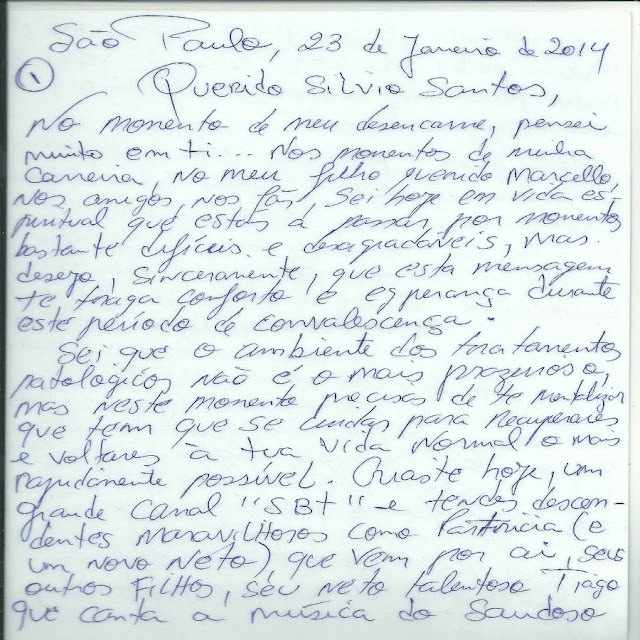 São Paulo, 23 de Janeiro de 2014
1
Querido Silvio Santos,
No momento de meu desencarne, pensei
muito em ti... Nos momentos de minha
carreira no meu filho querido Marcello,
nos amigos, nos fãs, sei hoje em vida es-
piritual que estás a passar por momentos
bastante difíceis e desagradáveis, mas
desejo, sinceramente, que esta mensagem
te traga conforto e esperança durante
este período de convalescença.
Sei que o ambiente dos tratamentos
patológicos não é o mais prazeroso,
mas neste momento precisas de te mentalizar
que tem que se cuidar para recuperares
e voltares à tua vida normal o mais
rapidamente possível. Criaste hoje, um
grande canal "SBT" - e tendes descen-
dentes maravilhosos como Patrícia (e
um novo Neto), que vem por aí, seus
outros Filhos, seu neto talentoso Tiago
que canta a música do Saudoso